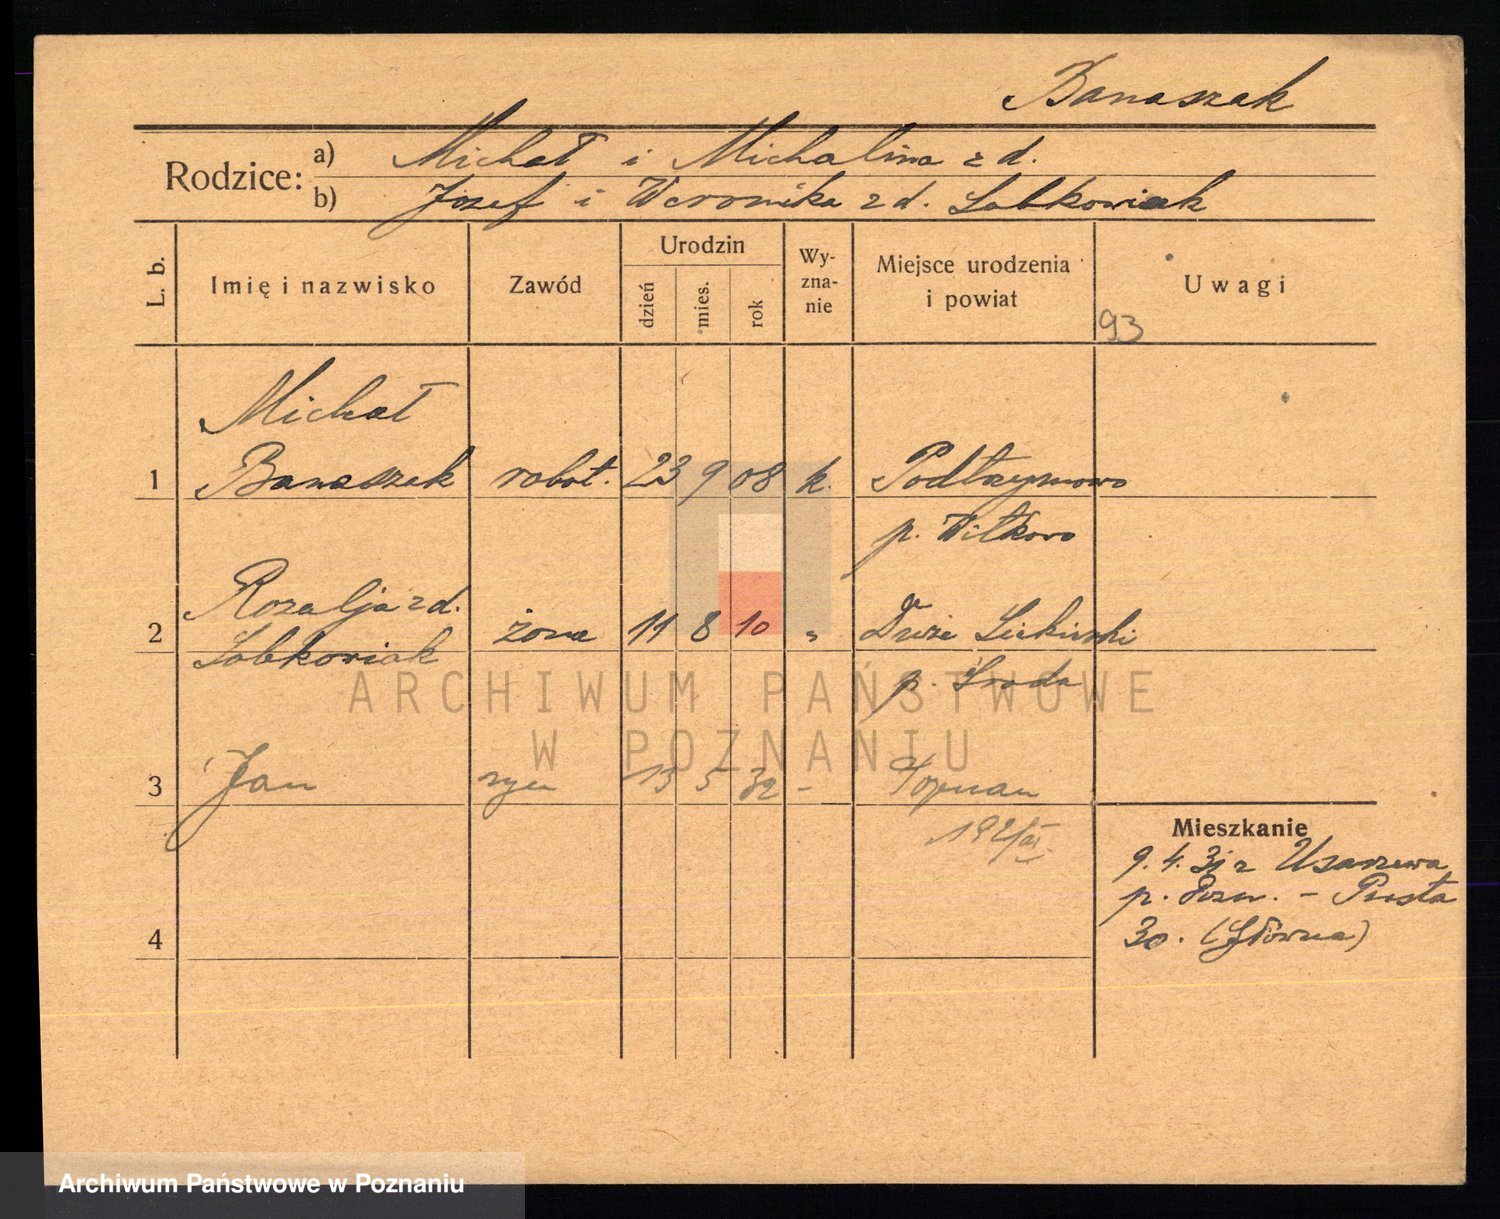 Banaszak
Rodzice:
a) Michał i Michalina z d.
b) Józef i Weronika z d. Sobkowiak
L. b.
Imię i nazwisko
Zawód
Urodzin
dzień
mies.
rok
Wy-
zna-
nie
Miejsce urodzenia
i powiat
Uwagi
93
Michał
1 Banaszak robot. 23 9 08 k.
p. Witkowo
Rozalja z d.
2 Sobkowiak żona 11 8 10 "
p. Środa
3 Jan syn 13 5 32 - Poznań
Mieszkanie
9. 4. 31 z
p. Pozn. - Prosta
30. (Główna)
4
ARCHIWUM PAŃSTWOWE
W POZNANIU
Archiwum Państwowe w Poznaniu